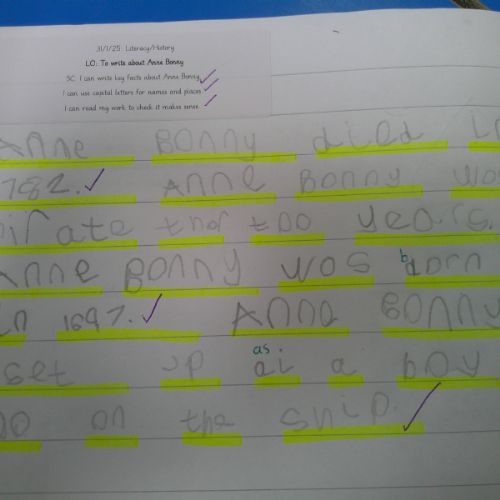 31/1/25: Literacy/History
LO: To write about Anne Bonny
SC: I can write key facts about Anne Bonny
I can use capital letters for names and places
I can read my work to check it makes sense
Anne Bonny died in
1782. Anne Bonny wos
pirate thof too years.
Anne Bonny wos b dorn
in 1697. Anna Bonny
as.
set up ai a boy
on the ship.